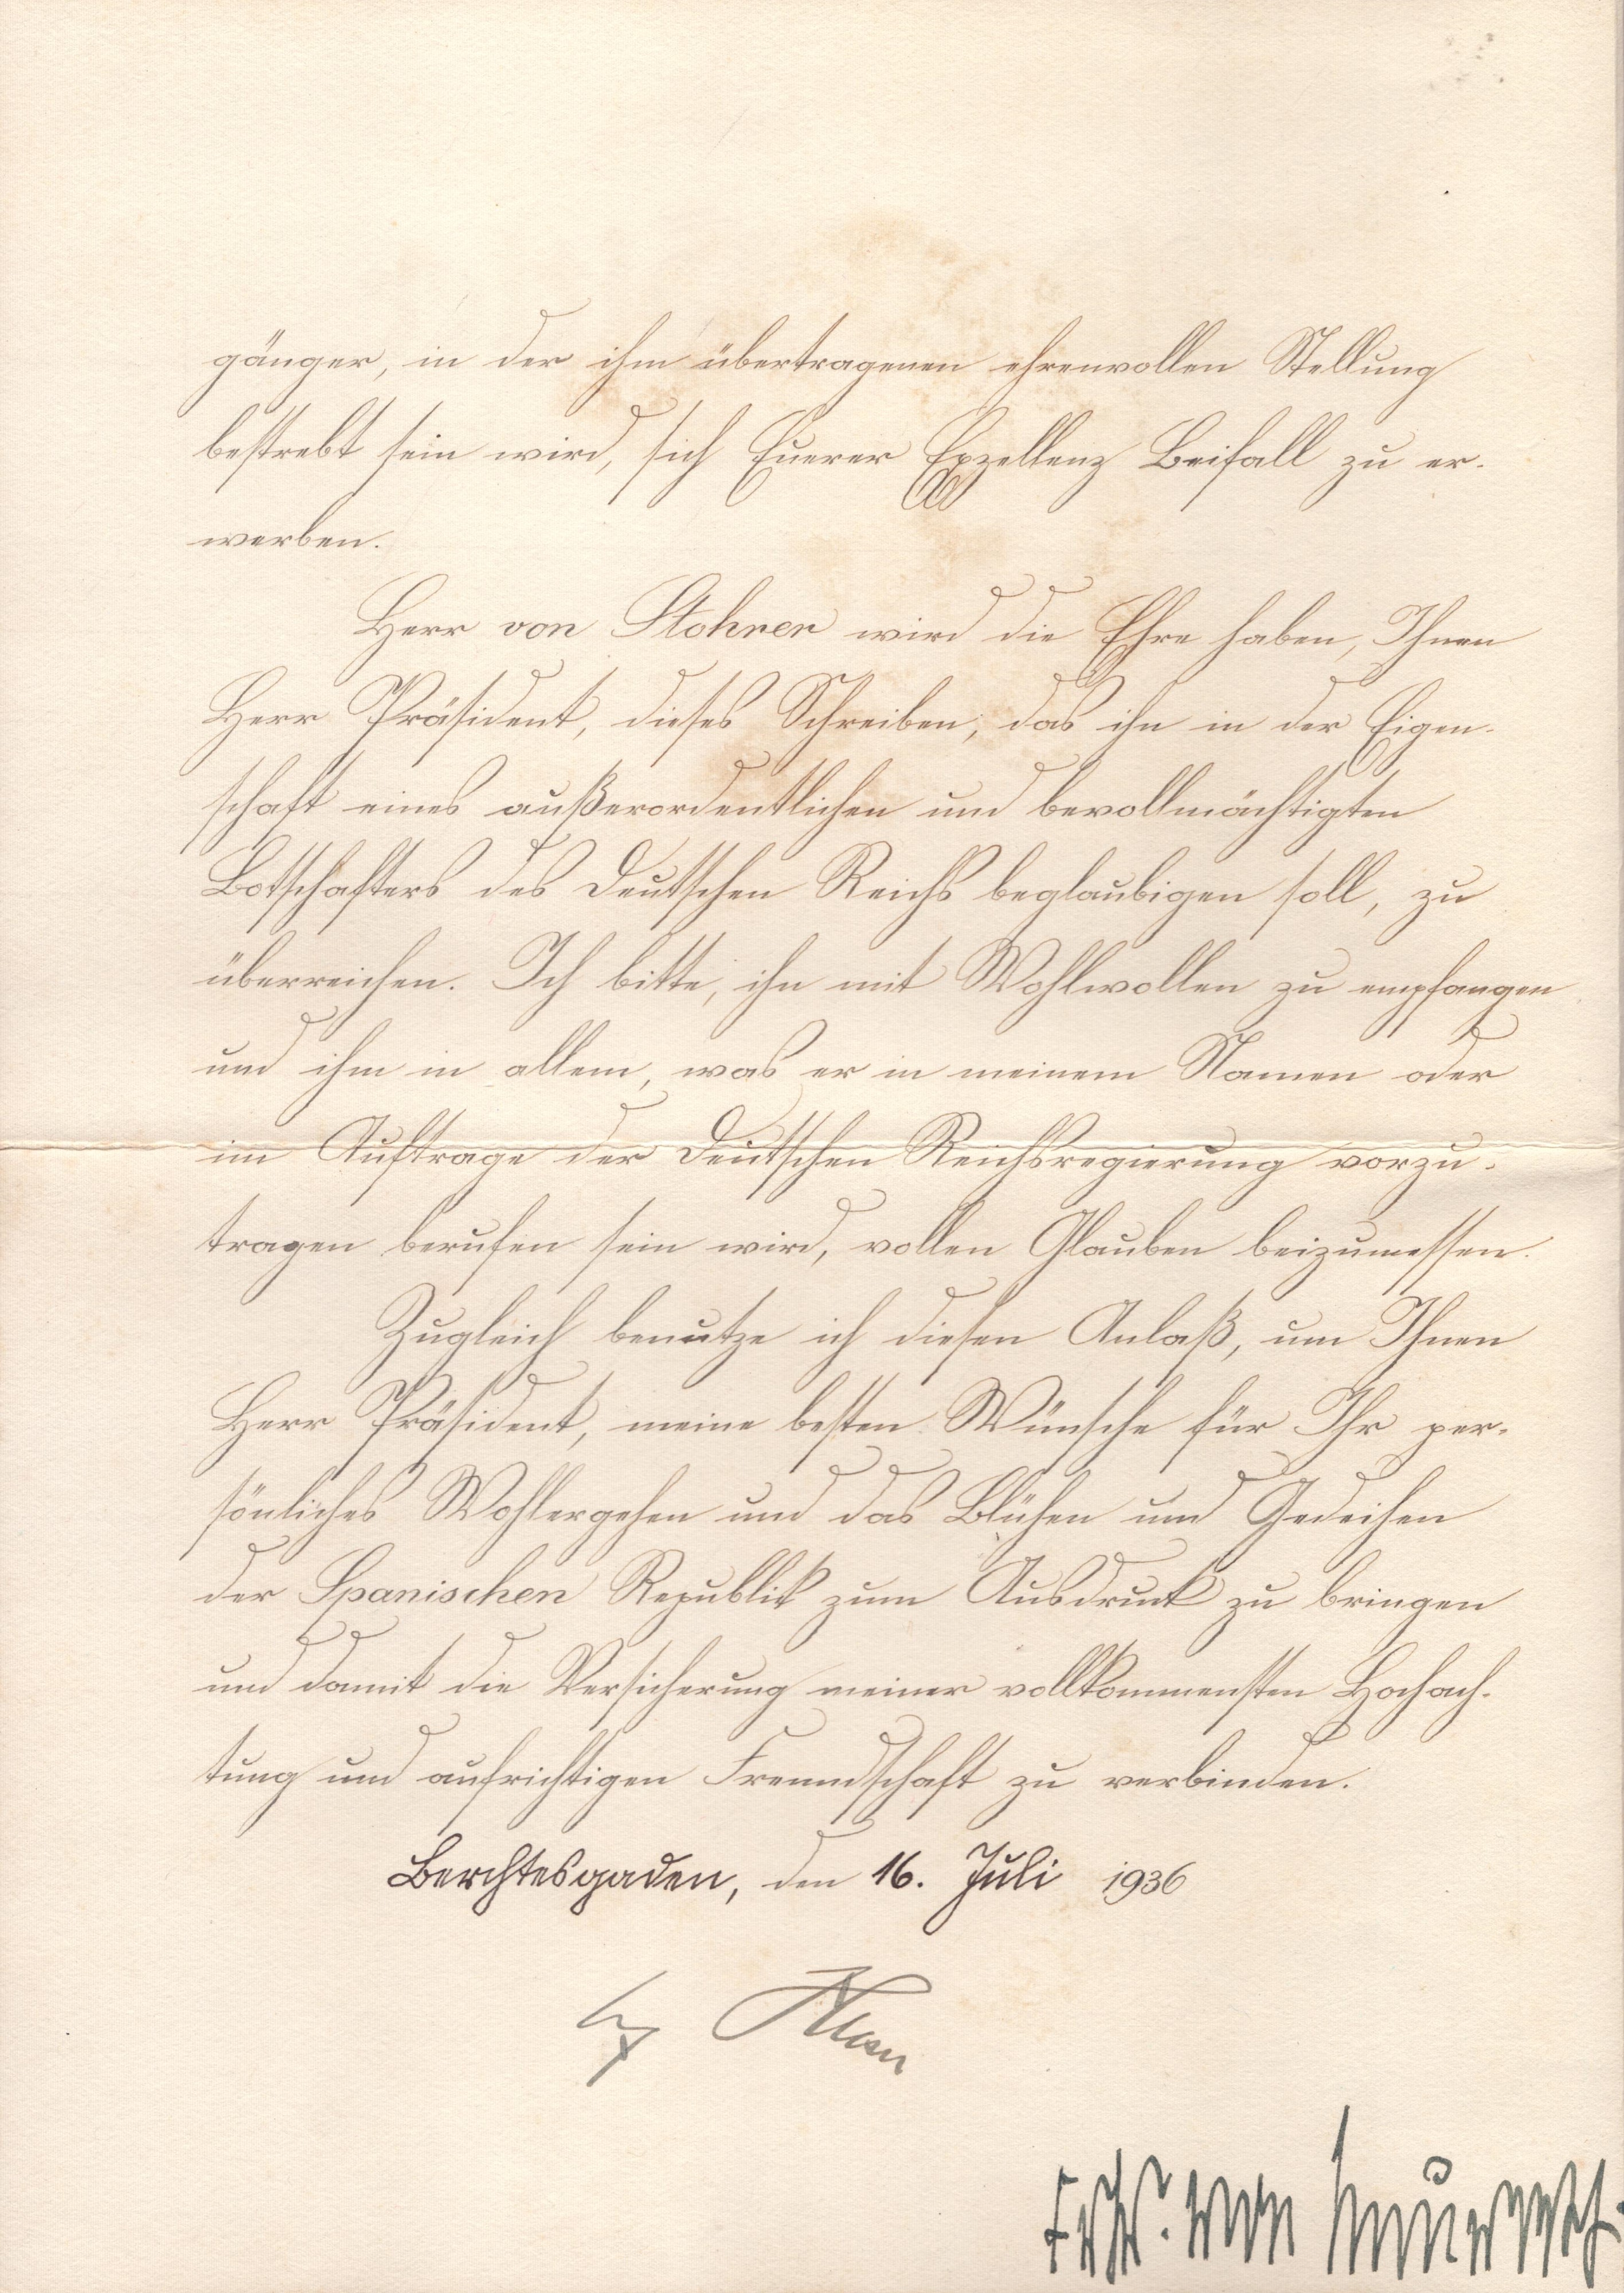 gänger, in der ihm übertragenen ehrenvollen Stellung
bestrebt sein wird, sich Euerer Exzellenz Beifall zu er-
werben.
Herr von Stohrer wird die Ehre haben, Ihnen
Herr Präsident, dieses Schreiben, das ihn in der Eigen-
schaft eines außerordentlichen und bevollmächtigten
Botschafters des Deutschen Reichs beglaubigen soll, zu
überreichen. Ich bitte, ihn mit Wohlwollen zu empfangen
und ihm in allem, was er in meinem Namen oder
im Auftrage der Deutschen Reichsregierung vorzu-
tragen berufen sein wird, vollen Glauben beizumessen.
Zugleich benutze ich diesen Anlaß, um Ihnen
Herr Präsident, meine besten Wünsche für Ihr per-
sönliches Wohlergehen und das Blühen und Gedeihen
der Spanischen Republik zum Ausdruck zu bringen
und damit die Versicherung meiner vollkommensten Hochach-
tung und aufrichtigen Freundschaft zu verbinden.
Berchtesgaden, den 16. Juli 1936
Frhr. von Neurath